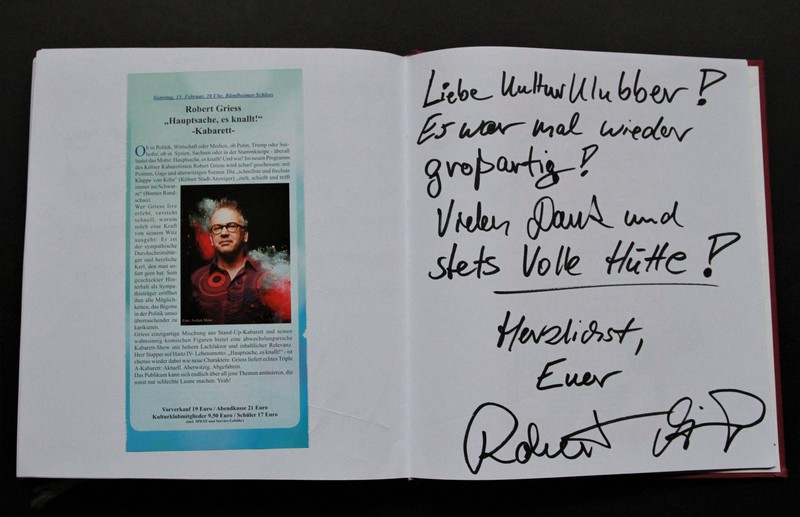 Samstag, 13. Februar, 20 Uhr, Bündheimer Schloss
Robert Griess
„Hauptsache, es knallt!“
-Kabarett-
Ob in Politik, Wirtschaft oder Medien, ob Putin, Trump oder See-
hofer, ob in Syrien, Sachsen oder in der Stammkneipe - überall
lautet das Motto: Hauptsache, es knallt! Und wie! Im neuen Programm
des Kölner Kabarettisten Robert Griess wird scharf geschossen: mit
Pointen, Gags und aberwitzigen Szenen. Die „schnellste und frechste
Klappe von Köln“ (Kölner Stadt-Anzeiger) „zielt, schießt und trifft
immer ins Schwar-
ze“ (Bonner Rund-
schau).
Wer Griess live
erlebt, versteht
schnell, warum
solch eine Kraft
von seinem Witz
ausgeht: Er ist
der sympathische
Durchschnittsbür-
ger und herzliche
Kerl, den man so-
fort gern hat. Sein
geschickter Hin-
terhalt als Sympa-
thieträger eröffnet
ihm alle Möglich-
keiten, das Bigotte
in der Politik umso
überraschender zu
karikieren.
Griess einzigartige Mischung aus Stand-Up-Kabarett und seinen
wahnsinnig komischen Figuren bietet eine abwechslungsreiche
Kabarett-Show mit hohem Lachfaktor und inhaltlicher Relevanz.
Herr Stapper auf Hartz IV- Lebensmotto: „Hauptsache, es knallt!“ - ist
ebenso wieder dabei wie neue Charaktere. Griess liefert echtes Triple
A-Kabarett: Aktuell. Aberwitzig. Abgefahren.
Das Publikum kann sich endlich über all jene Themen amüsieren, die
sonst nur schlechte Laune machen. Yeah!
Vorverkauf 19 Euro / Abendkasse 21 Euro
Kulturklubmitglieder 9,50 Euro / Schüler 17 Euro
Liebe KulturKlubber!
Es war mal wieder
großartig!
Vielen Dank und
stets Volle Hütte!
Herzlichst,
Euer
Robert Griess